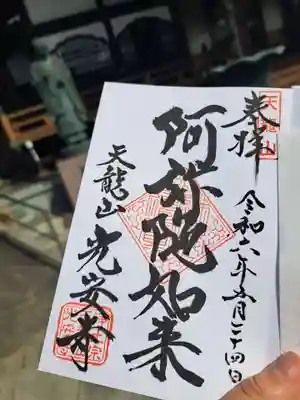 天龍山
奉拝
令和六年五月二十四日
阿弥陀如来
天龍山
光安寺